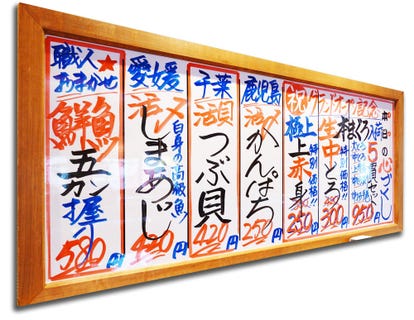 本日の心づくし
祝グランドオープン記念
本まぐろ
950円
生中とろ
特別価格!!
300円
極上
極上赤身
特別価格!!
250円
鹿児島
活〆
かんぱち
250円
千葉
活貝
つぶ貝
420円
愛媛
活〆
しまあじ
白身の高級魚!
420円
職人★
おまかせ
鮮魚
五カン握り
580円